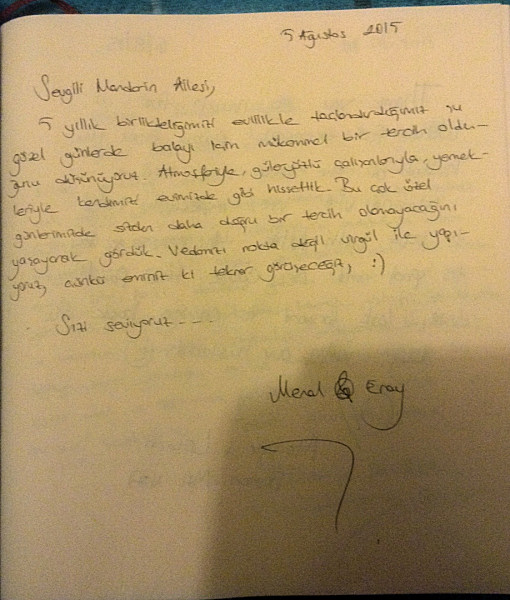 5 Ağustos 2015
Sevgili Mandarin Ailesi,
5 yıllık birlikteliğimizi evlilikle taçlandırdığımız şu
güzel günlerde balayı için mükemmel bir tercih oldu-
ğunu düşünüyoruz. Atmosferiyle, güleryüzlü çalışanlarıyla, yemek-
leriyle kendimizi evimizde gibi hissettik. Bu çok özel
günlerimizde sizden daha doğru bir tercih olamayacağını
yaşayarak gördük. Vedamızı nokta değil virgül ile yapı-
yoruz, çünkü eminiz ki tekrar görüşeceğiz, :)
Sizi seviyoruz ----
Meral & Eray